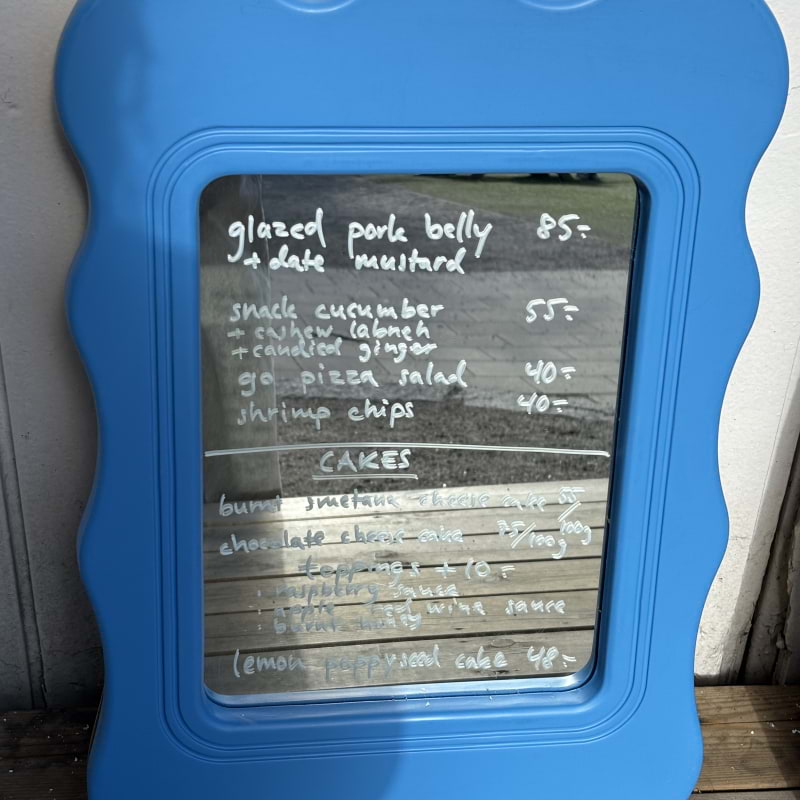 glazed pork belly 85:-
+ date mustard
snack cucumber 55:-
+ cashew labneh
+ candied ginger
go pizza salad 40:-
shrimp chips 40:-
CAKES
burnt smetana cheese cake 55/100g
chocolate cheese cake /100g
toppings + 10:-
: raspberry sauce
: apple red wine sauce
: burnt honey
lemon poppyseed cake 48:-